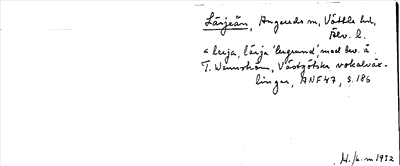 Lärjeån, Angereds sn, Vättle hd,
Älv. l.
< lerja, lärja 'lergrund', med bev. ä.
T. Wennström, Västgötska vokalväx-
lingar, ANF 47, s. 186
1932